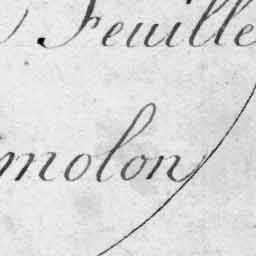 Feuille
molon